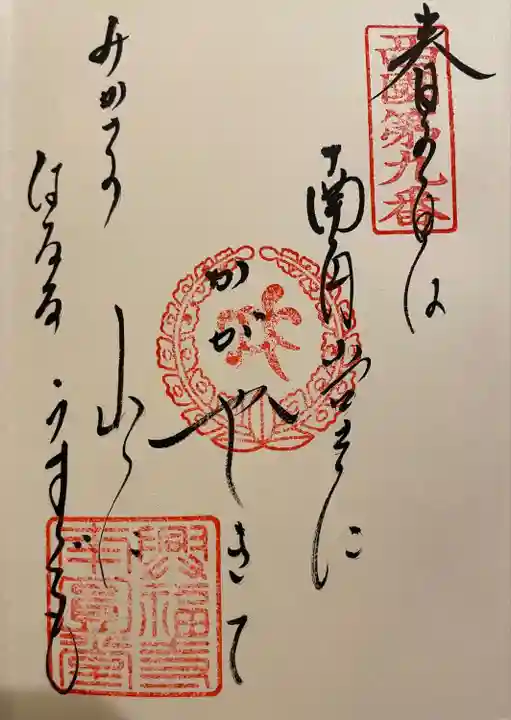 西國第九番
春の日は
南円堂に
かがやきて
みかさの
山に
はるる うすぐも
興福寺
南圓堂